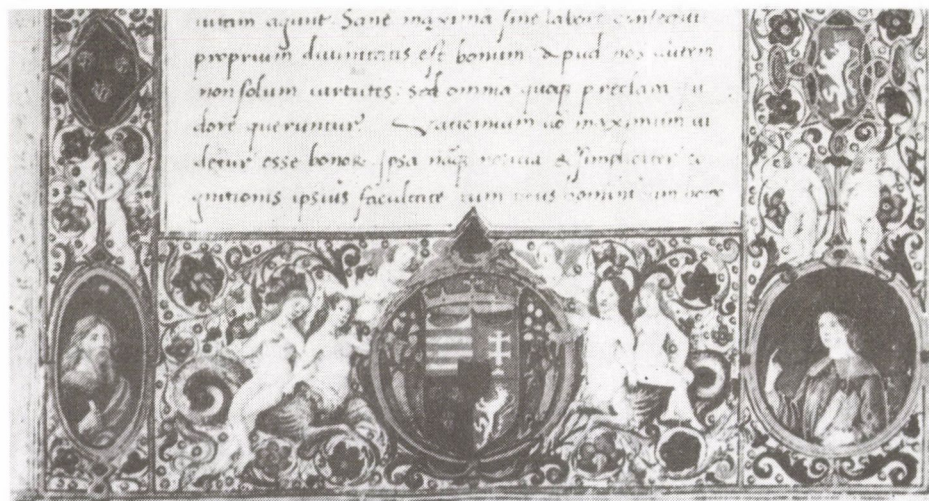 agunt. Sane maxima sine labore consequi
proprium diuinitatis est bonum. Apud nos autem
non solum uirtutes: sed omnia quoq preclara su
dore queruntur. Vaticinium uo maximum ui
detur esse bonoꝝ. Ipsa nāq noticia & simpliciter co
gnitionis ipsius facultate tum